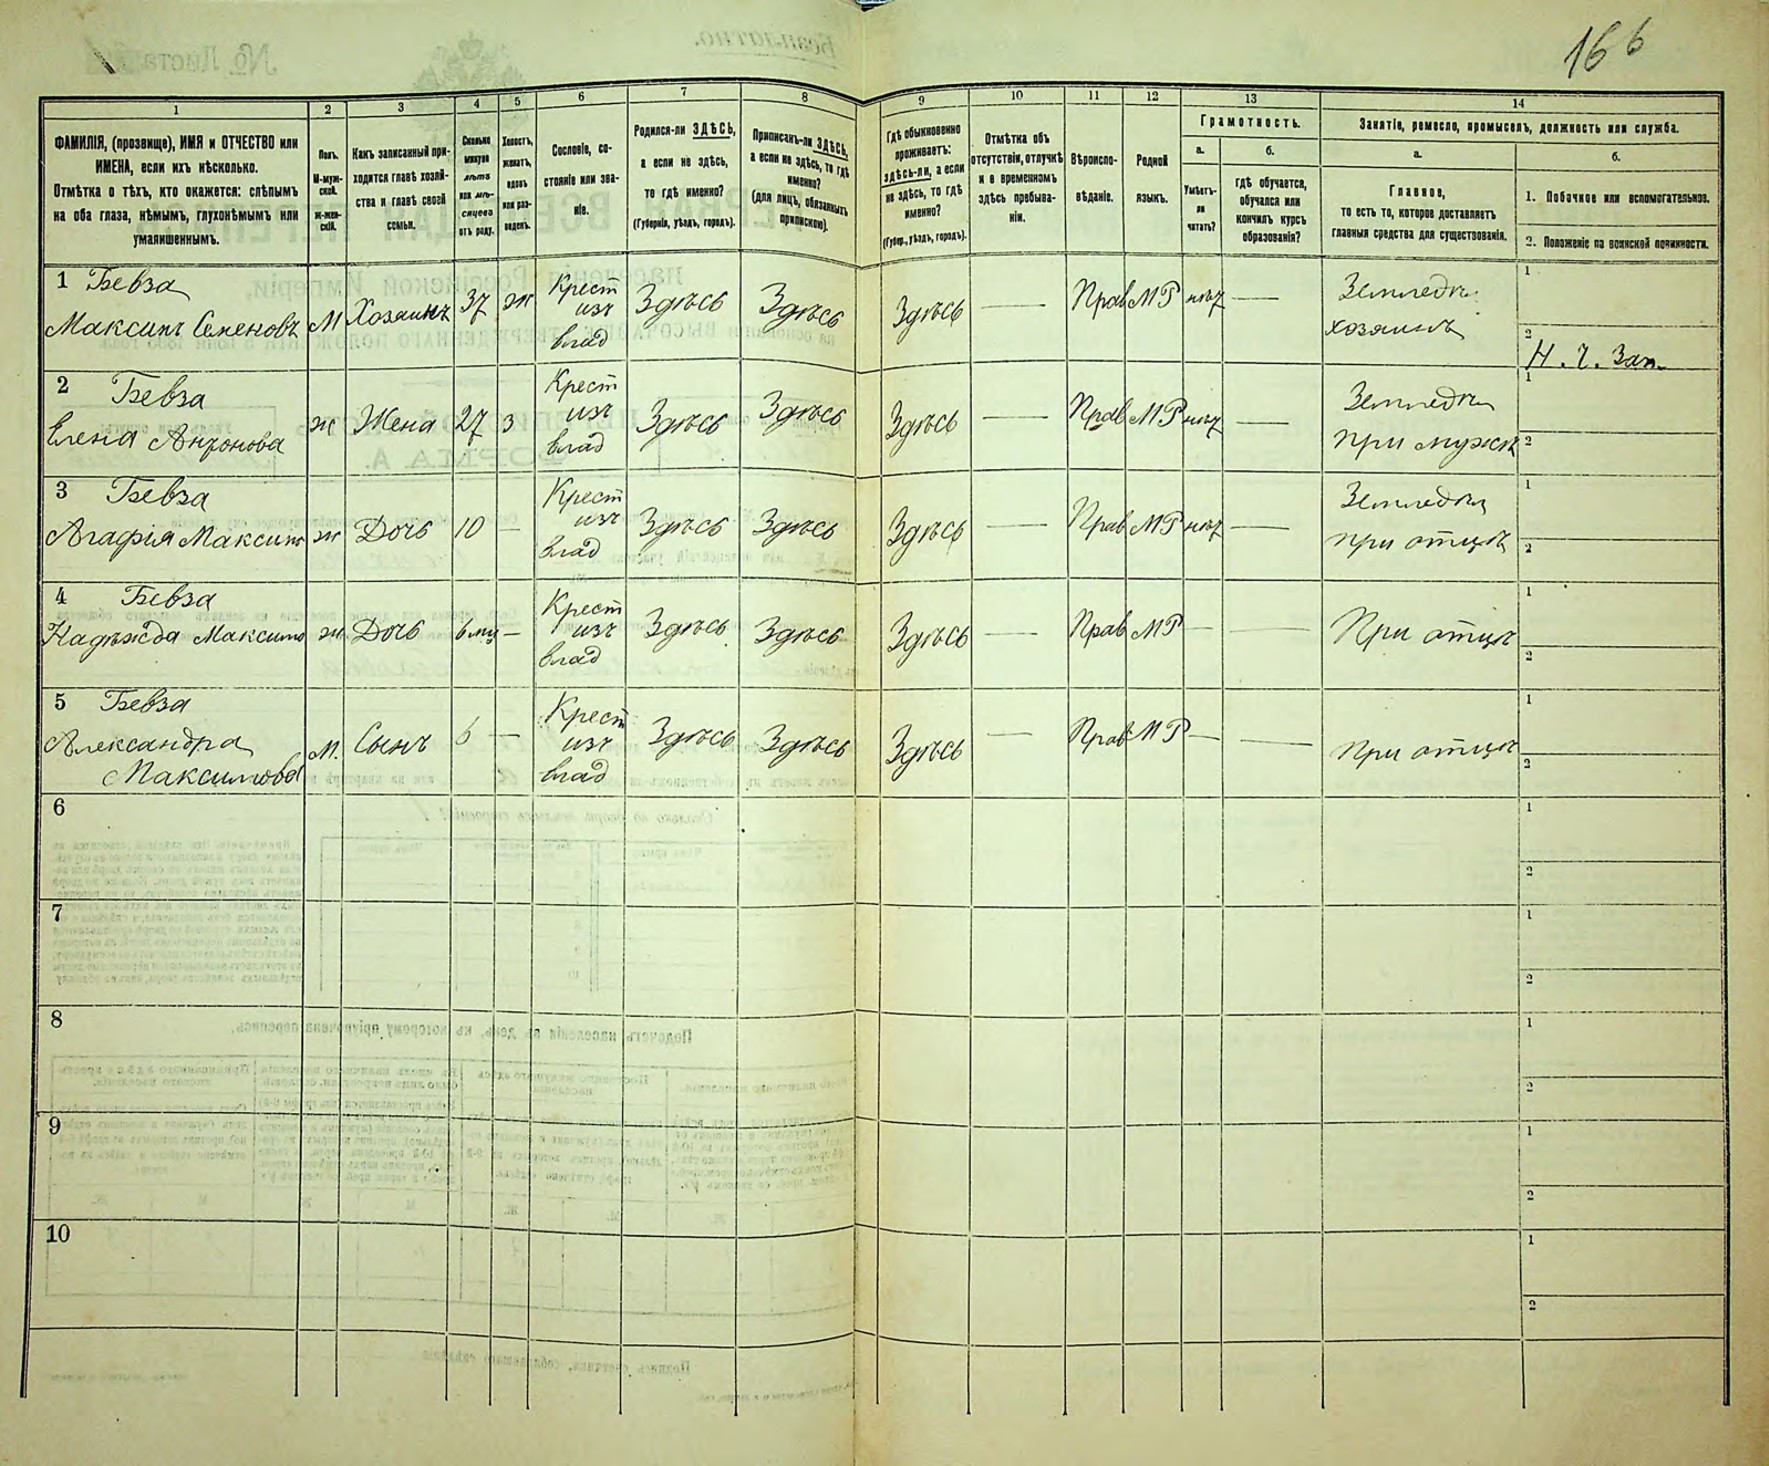 166
1 2 3 4 5 6 7 8 9 10 11 12 13 14
ФАМИЛІЯ, (прозвище), ИМЯ и ОТЧЕСТВО или
ИМЕНА, если ихъ нѣсколько.
Отмѣтка о тѣхъ, кто окажется: слѣпымъ
на оба глаза, нѣмымъ, глухонѣмымъ или
умалишеннымъ.
Полъ.
М-муж-
ской.
Ж-жен-
скій.
Какъ записанный при-
ходится главѣ хозяй-
ства и главѣ своей
семьи.
Сколько
минуло
лѣтъ
или мѣ-
сяцевъ
отъ роду.
Холостъ,
женатъ,
вдовъ
или раз-
веденъ.
Сословіе, со-
стояніе или зва-
ніе.
Родился-ли ЗДѢСЬ,
а если не здѣсь,
то гдѣ именно?
(Губернія, уѣздъ, городъ).
Приписанъ-ли ЗДѢСЬ,
а если не здѣсь, то гдѣ
именно?
(для лицъ, обязанныхъ
припискою).
Гдѣ обыкновенно
проживаетъ:
здѣсь-ли, а если
не здѣсь, то гдѣ
именно?
(Губер., уѣздъ, городъ).
Отмѣтка объ
отсутствіи, отлучкѣ
и о временномъ
здѣсь пребыва-
ніи.
Вѣроиспо-
вѣданіе.
Родной
языкъ.
Грамотность.
а.
Умѣетъ-
ли
читать?
б.
гдѣ обучается,
обучался или
кончилъ курсъ
образованія?
Занятіе, ремесло, промыселъ, должность или служба.
а.
Главное,
то есть то, которое доставляетъ
главныя средства для существованія.
б.
1. Побочное или вспомогательное.
2. Положеніе по воинской повинности.
1 Бевза
Максимъ Семеновъ М Хозяинъ 37 ж Крест изъ влад Здѣсь Здѣсь Здѣсь — Прав МР нѣт —
Земледѣл
хозяинъ
1
2
Н. Ч. Зап.
2 Бевза
Елена Антонова ж Жена 27 з Крест изъ влад Здѣсь Здѣсь Здѣсь — Прав МР нѣт —
Земледѣл
при мужѣ
1
2
3 Бевза
Агафія Максим ж Дочь 10 — Крест изъ влад Здѣсь Здѣсь Здѣсь — Прав МР нѣт —
Земледѣл
при отцѣ
1
2
4 Бевза
Надѣжда Максимо ж Дочь — Крест изъ влад Здѣсь Здѣсь Здѣсь — Прав МР — —
При отцѣ
1
2
5 Бевза
Александра
Максимова М. Сынъ 6 — Крест изъ влад Здѣсь Здѣсь Здѣсь — Прав МР — —
При отцѣ
1
2
6
1
2
7
1
2
8
1
2
9
1
2
10
1
2